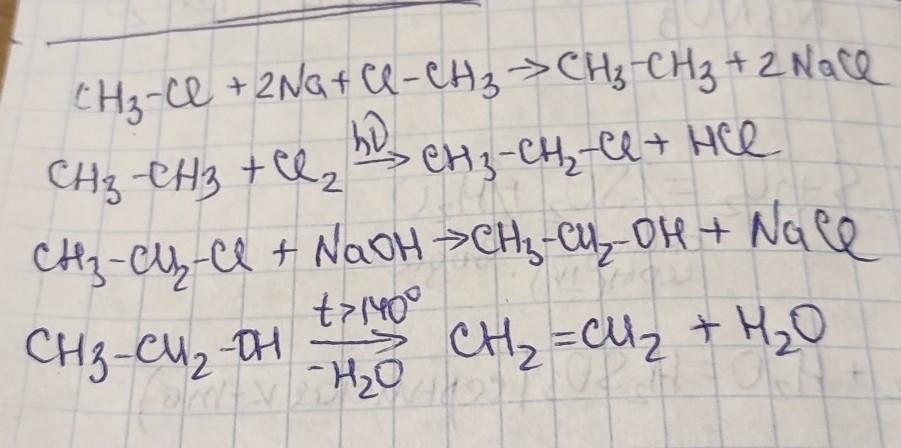 CH₃-Cl + 2Na + Cl-CH₃ → CH₃-CH₃ + 2NaCl
hν
CH₃-CH₃ + Cl₂ → CH₃-CH₂-Cl + HCl
CH₃-CH₂-Cl + NaOH → CH₃-CH₂-OH + NaCl
t>140°
CH₃-CH₂-OH → CH₂=CH₂ + H₂O
-H₂O